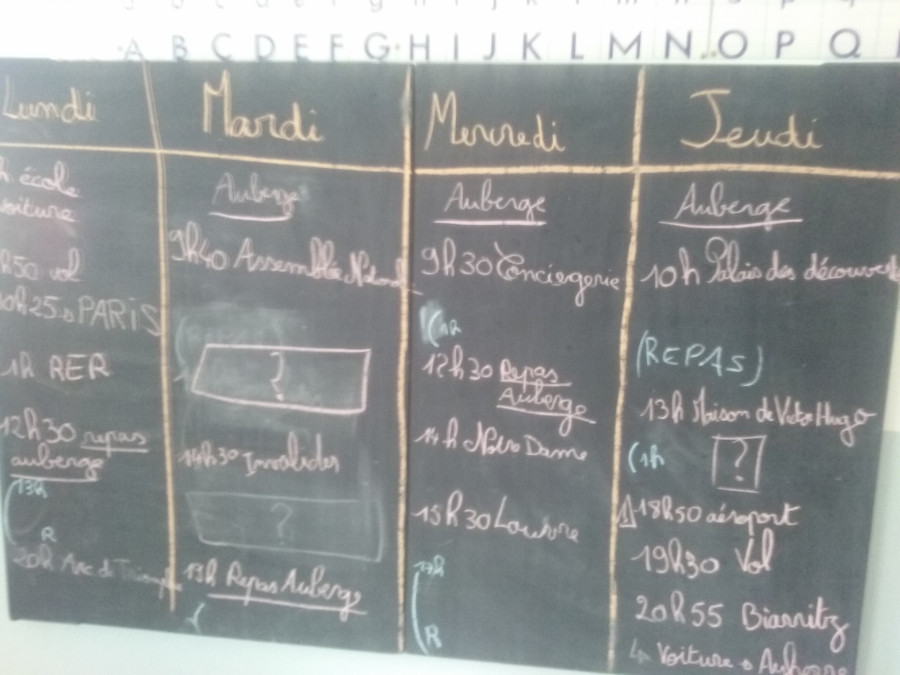 A B C D E F G H I J K L M N O P Q
Lundi
h. école
voiture
h50 vol
10h25 → PARiS
1h RER
12h30 repas
auberge
13h
R
20h Arc de Triomphe
Mardi
Auberge
9h40 Assemblée National
?
14h30 Invalides
?
19h Repas Auberge
Mercredi
Auberge
9h30 Conciergerie
12h30 Repas
Auberge
14h Notre Dame
15h30 Louvre
17h
R
Jeudi
Auberge
10h Palais des découvert
(REPAS)
13h Maison de Victor Hugo
(1h ?
18h50 aéroport
19h30 Vol
20h55 Biarritz
↳ Voiture →